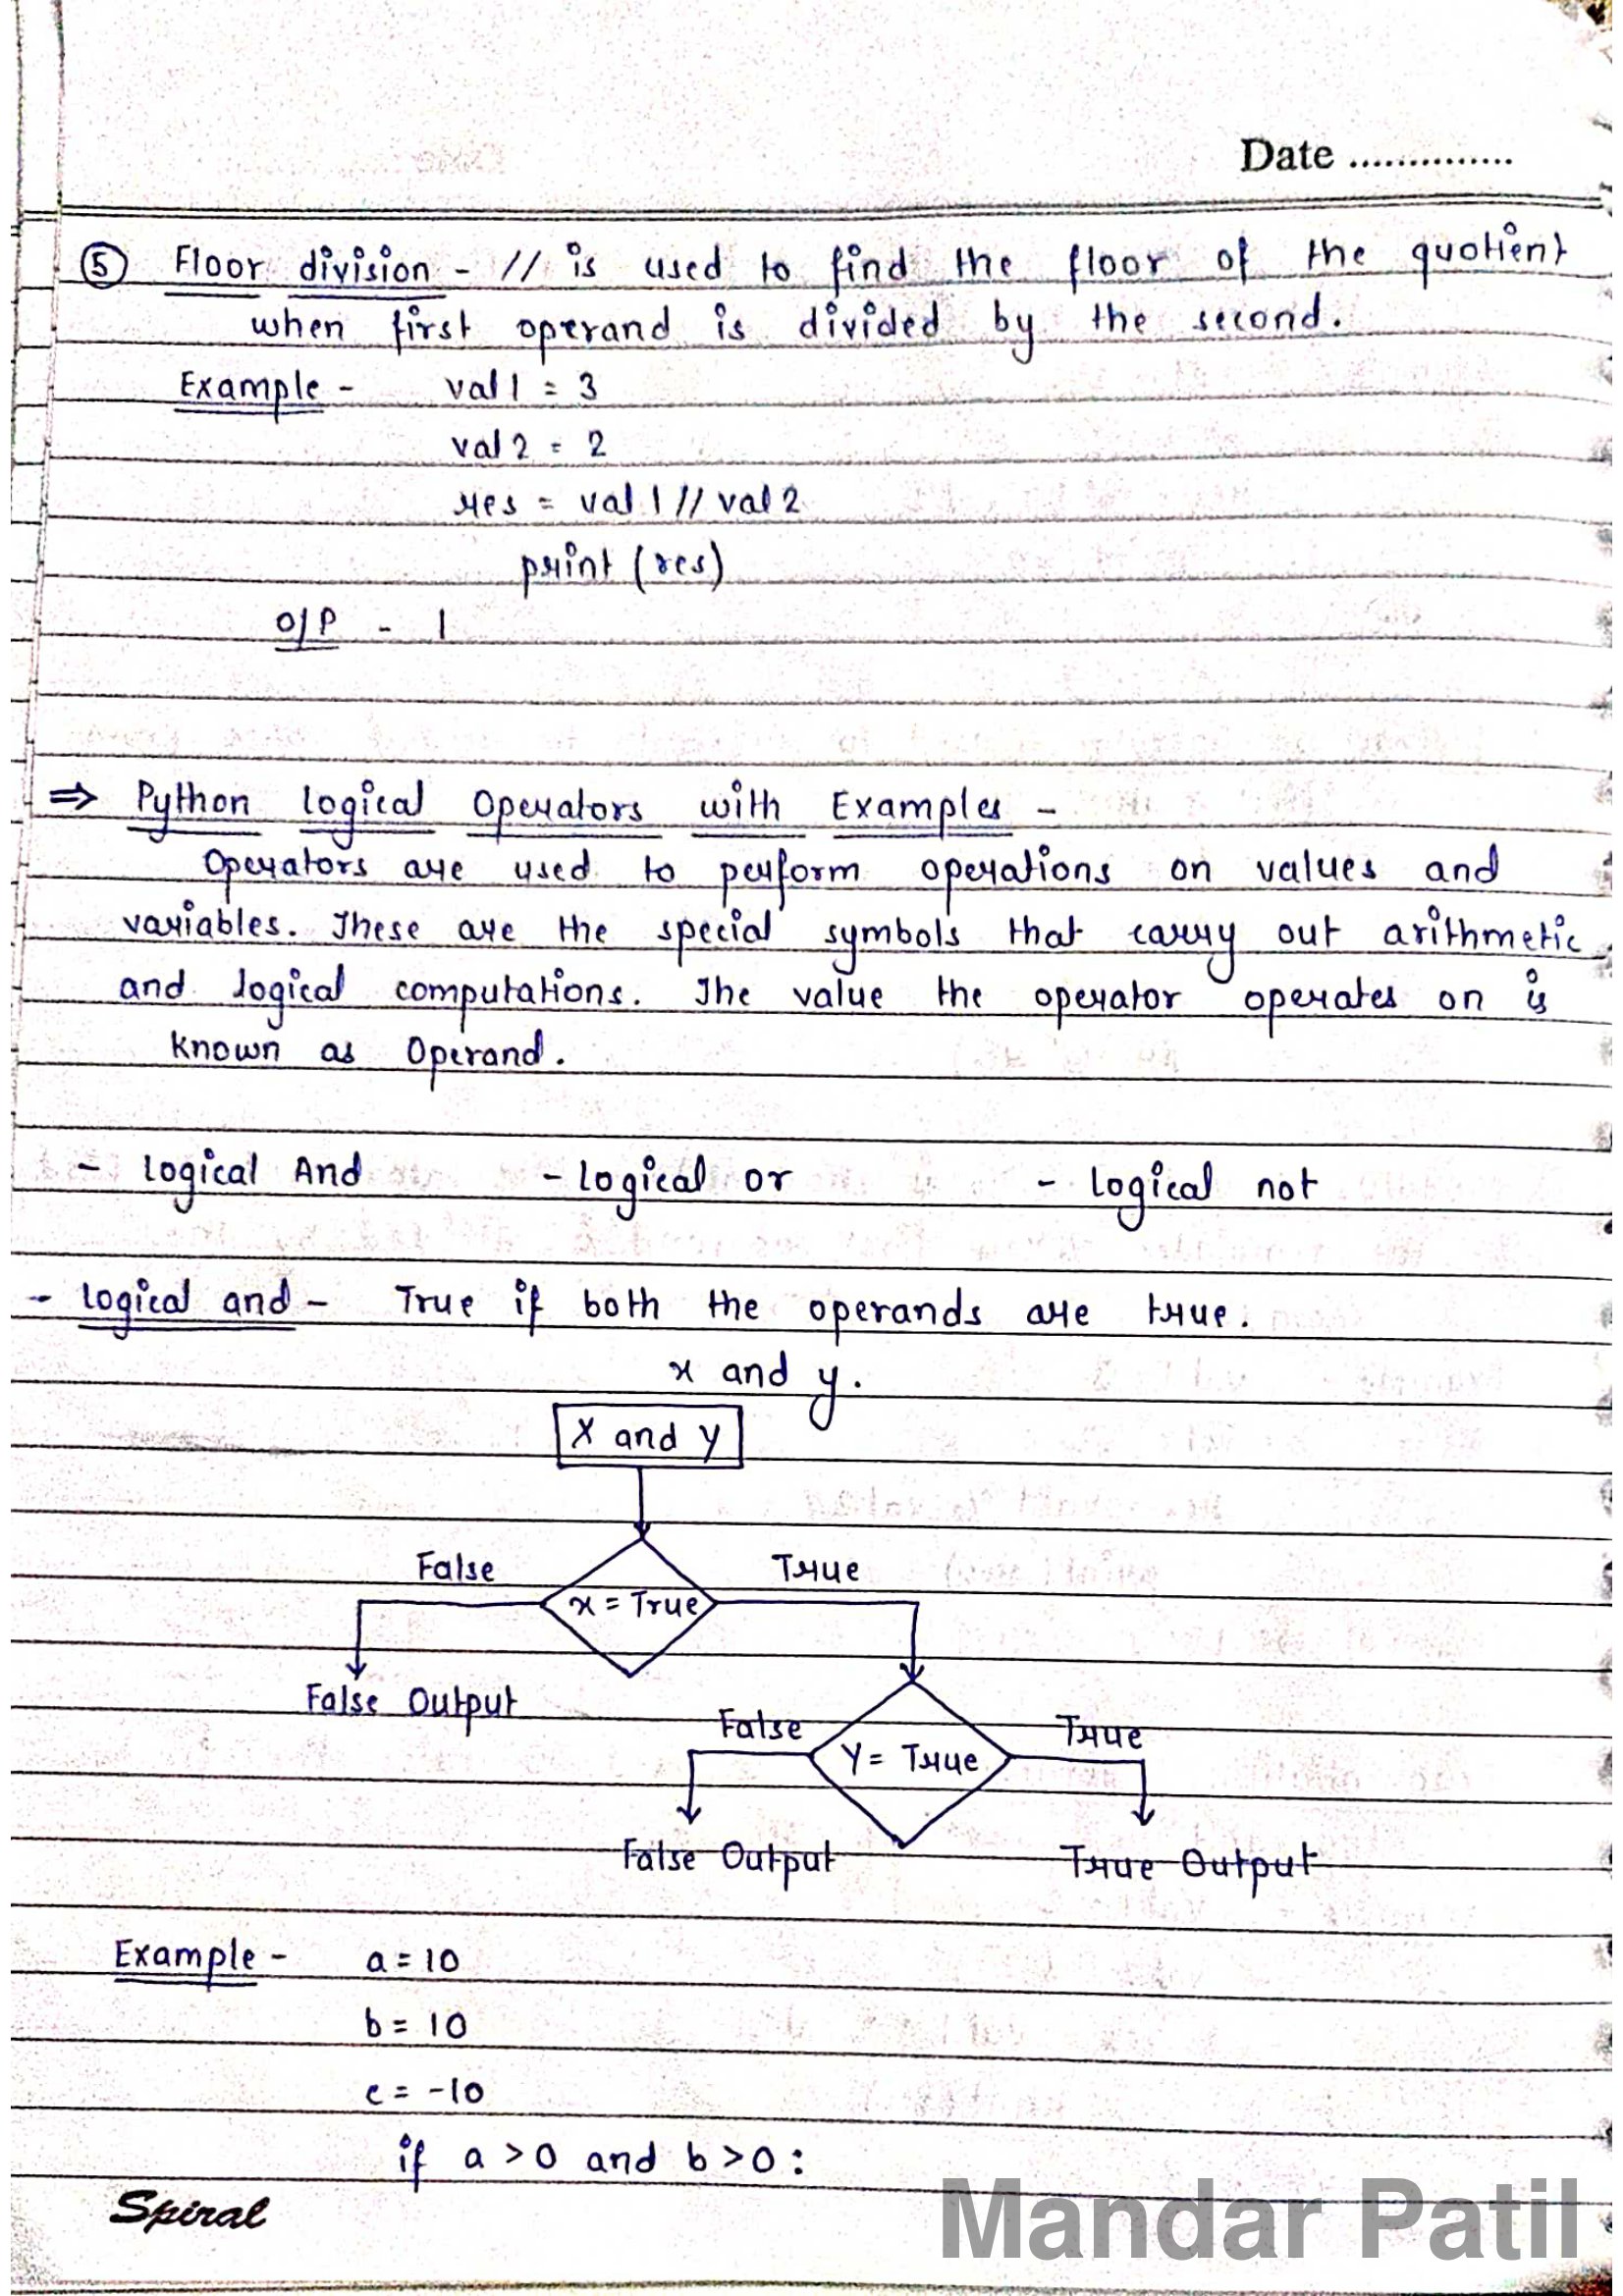 Date ..............
⑤ Floor division - // is used to find the floor of the quotient
when first operand is divided by the second.
Example - val1 = 3
val2 = 2
res = val1 // val2
print (res)
O/P - 1
⇒ Python logical Operators with Examples -
Operators are used to perform operations on values and
variables. These are the special symbols that carry out arithmetic
and logical computations. The value the operator operates on is
known as Operand.
- logical And - logical or - logical not
- logical and - True if both the operands are true.
x and y.
X and y
False True
x = True
False Output
False True
Y = True
False Output True Output
Example - a = 10
b = 10
c = -10
if a > 0 and b > 0 :
Spiral
Mandar Patil